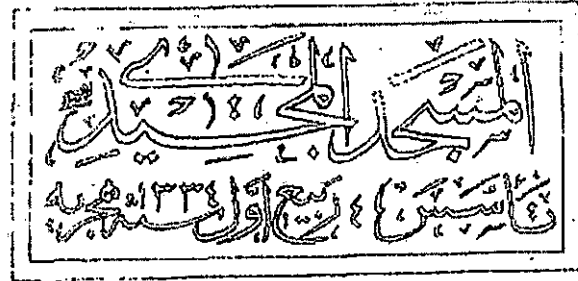 المسجد الحميدي
تاسيس ٤ ربيع اول سنه ١٣٣٤ هجريه